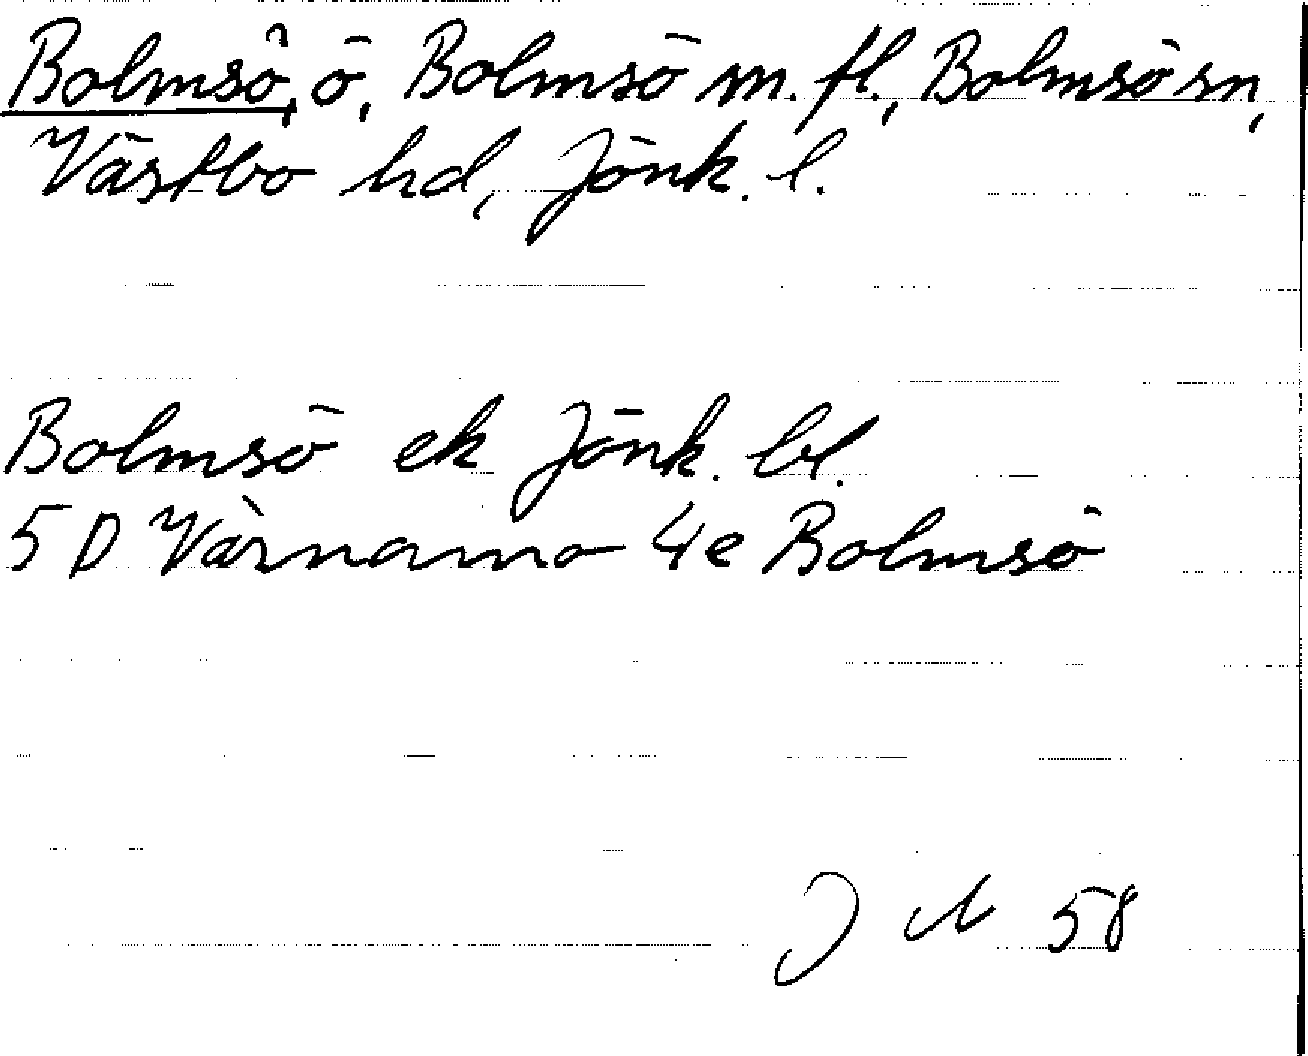 Bolmsö, ö, Bolmsö m. fl., Bolmsö sn,
Västbo hd, Jönk. l.
Bolmsö ek Jönk. bl.
5 D Värnamo 4e Bolmsö
J N 58